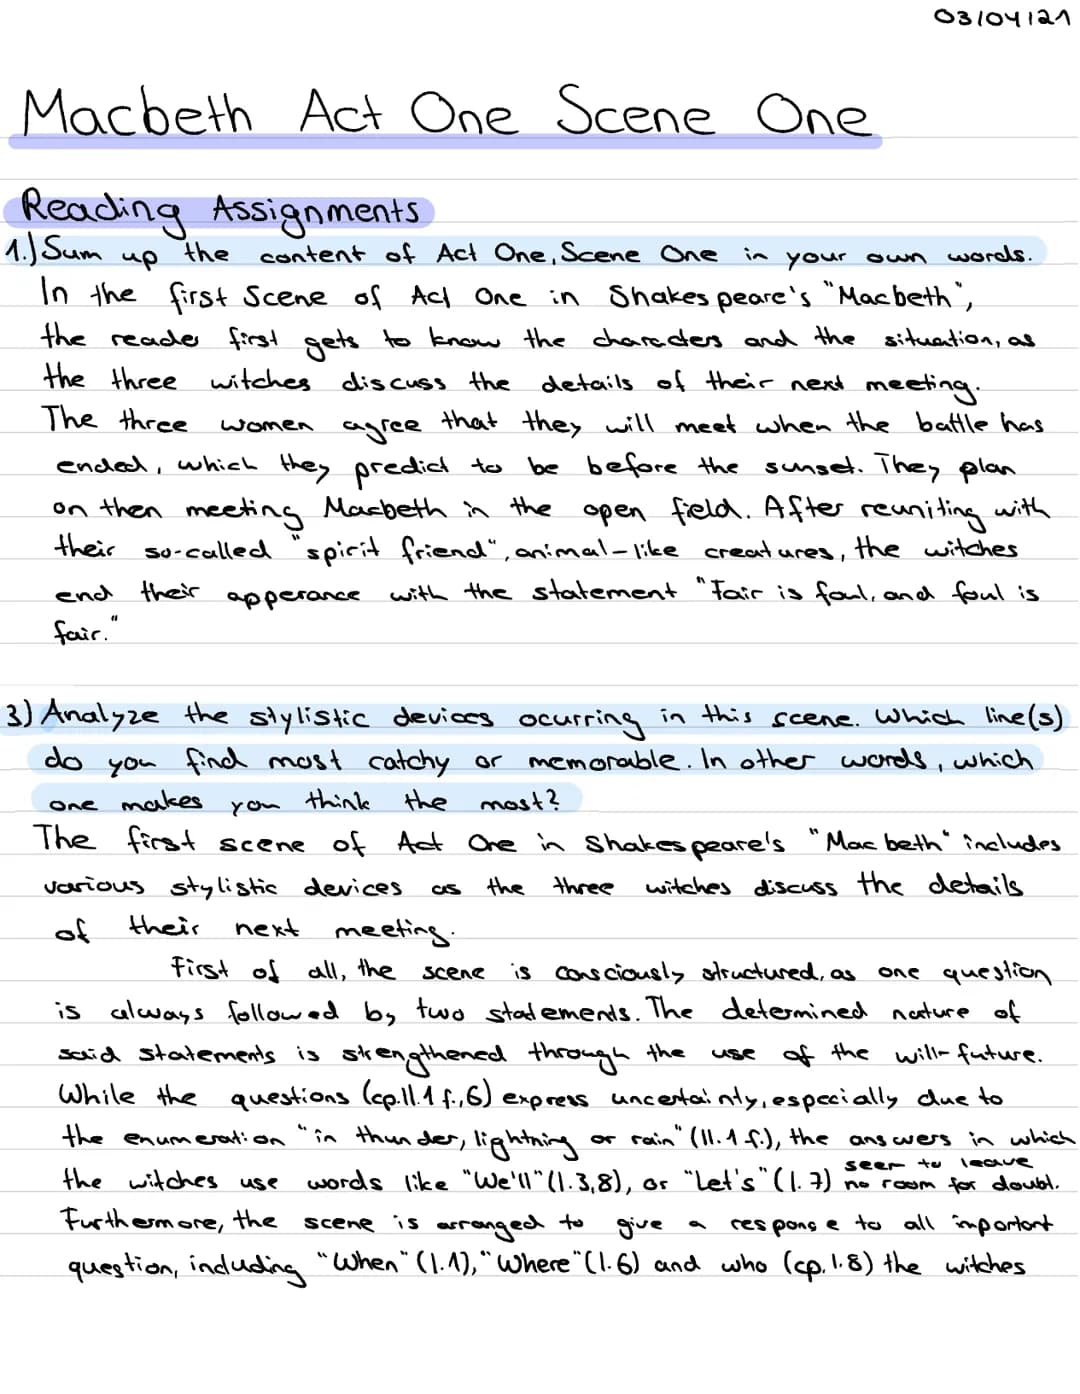 03/04/21
Macbeth Act One Scene One
Reading Assignments
1.) Sum up the content of Act One, Scene One in your own words.
In the first Scene of Act One in Shakespeare's "Macbeth",
the reader first gets to know the characters and the situation, as
the three witches discuss the details of their next meeting.
The three women agree that they will meet when the battle has
ended, which they predict to be before the sunset. They plan
on then meeting Macbeth in the open field. After reuniting with
their so-called "spirit friend", animal-like creatures, the witches
end their apperance with the statement "Fair is foul, and foul is
fair."
3) Analyze the stylistic devices ocurring in this scene. Which line(s)
do you find most catchy or memorable. In other words, which
one makes you think the most?
The first scene of Act One in Shakespeare's "Macbeth" includes
various stylistic devices as the three witches discuss the details
of their next meeting.
First of all, the scene is consciously structured, as one question
is always followed by two statements. The determined nature of
said statements is strengthened through the use of the will-future.
While the questions (cp.ll.1 f.,6) express uncertainty, especially due to
the enumeration "in thunder, lightning or rain" (ll.1 f.), the answers in which
the witches use words like "We'll" (l.3,8), or "Let's" (l.7) seem to leave no room for doubt.
Furthermore, the scene is arranged to give a response to all important
question, including "When" (l.1), "Where" (l.6) and who (cp. l.8) the witches